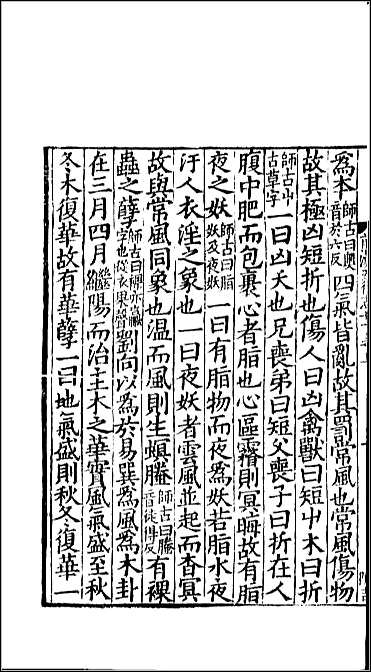 為本師古曰燠音於六反四氣皆亂故其罰常風也常風傷物
故其極凶短折也傷人曰凶禽獸曰短屮木曰折
師古曰屮古草字一曰凶夭也兄喪弟曰短父喪子曰折在人
腹中肥而包裹心者脂也心區霿則冥晦故有脂
夜之妖師古曰脂妖及夜妖一曰有脂物而夜為妖若脂水夜
汙人衣淫之象也一曰夜妖者雲風並起而杳冥
故與常風同象也溫而風則生螟螣師古曰螣音徒得反有裸
蟲之孽師古曰裸亦臝字也從衣果聲劉向以為於易巽為風為木卦
在三月四月繼陽而治主木之華實風氣盛至秋
冬木復華故有華孽一曰地氣盛則秋冬復華一